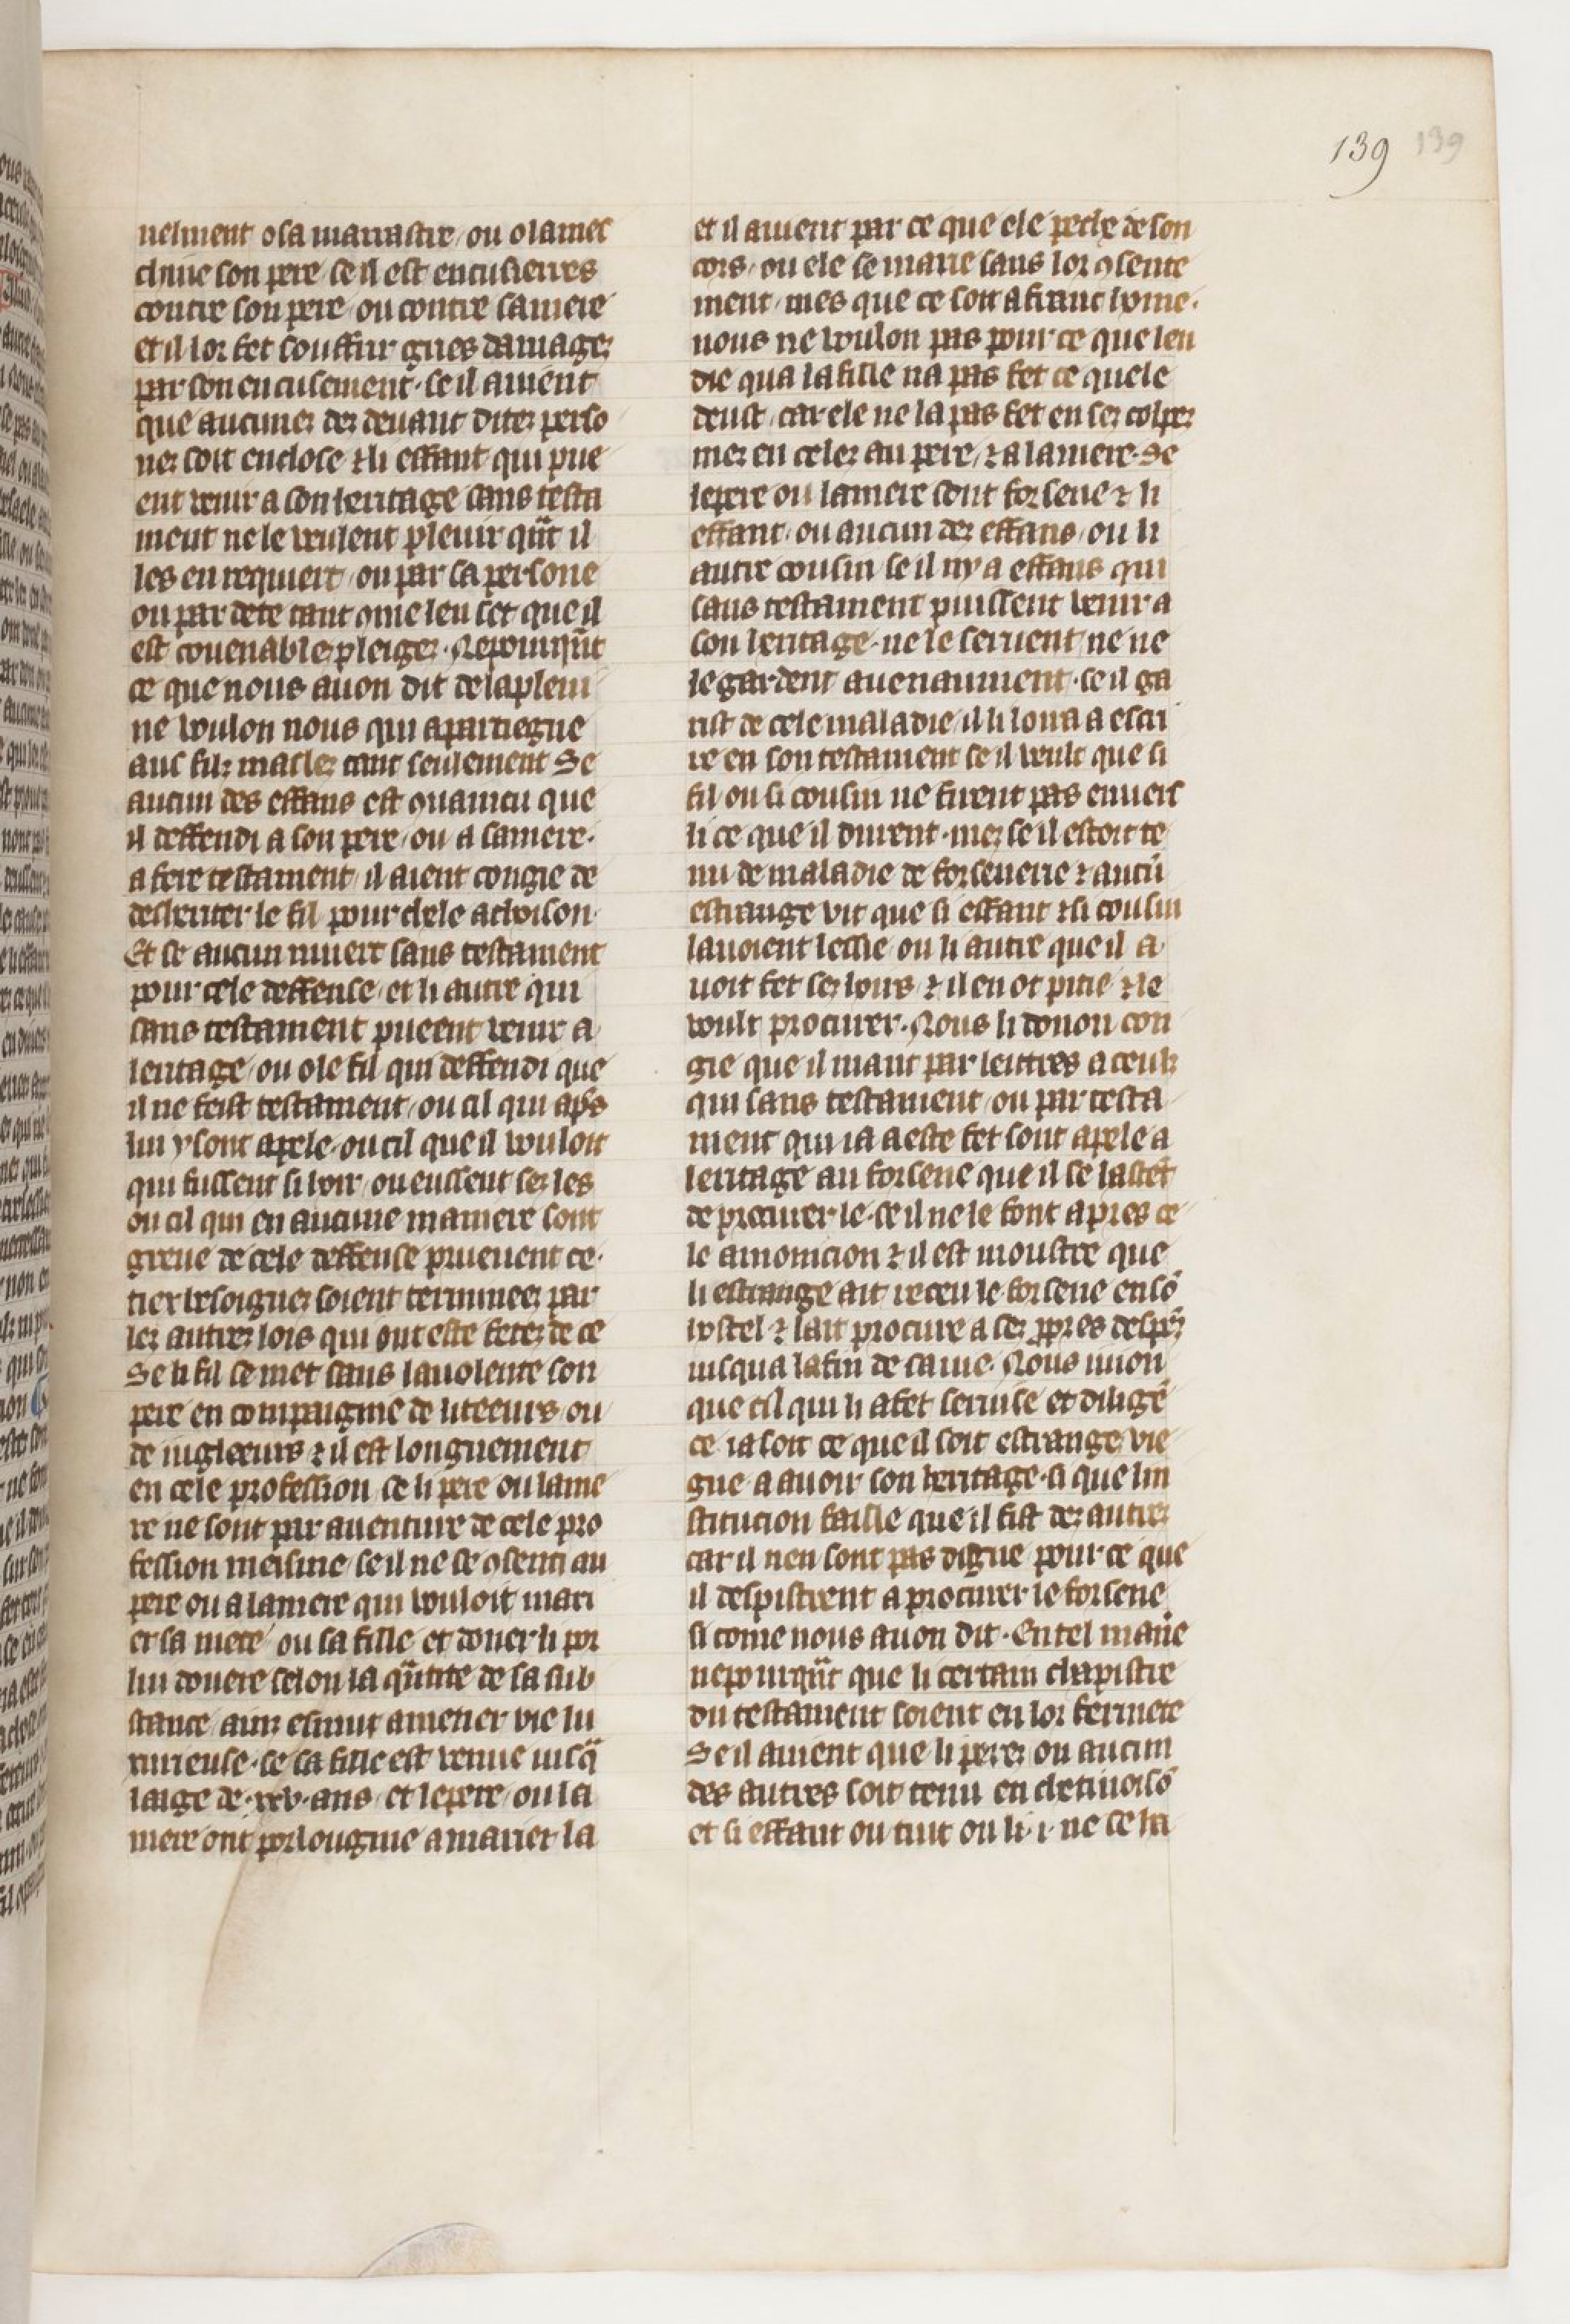 139 139
nelment o sa marrastre / ou o lamec
chine son pere se il est encuserres
contre son pere / ou contre sa mere
et il lor fet souffrir gries damagez
par son encusement · se il avient
que aucunez dez devant ditez perso
nez soit enclose ⁊ li effant qui pue
ent venir a son heritage sans testa
ment ne le veulent plevir qnt il
les en requiert / ou par sa persone
ou par dete tant ome len set que il
est covenablez pleigez · Nepourqnt
ce que nous avon dit de la plevi
ne voulon nous qui apartiegne
aus filz maslez tant seulement Se
aucun des effans est 9vaincu que
il deffendi a son pere / ou a sa mere ·
a fere testament / il aient congie de
desheriter le fil pour chele achoison ·
Et se aucun muert sans testament
pour cele deffense / et li autre qui
sans testament pueent venir a
leritage / ou o le fil qui deffendi que
il ne feist testament / ou cil qui aps
lui y sont apele · ou cil que il vouloit
qui fussent si hoir / ou eussent sez les
ou cil qui en aucune maniere sont
greve de cele deffense prueuent ce ·
tiex besoignez soient termineez par
lez autrez lois qui ont este fetez de ce
Se li fil se met sans la volente son
pere en compaignie de luteeurs / ou
de iugleeurs ⁊ il est longuement
en cele profession / se li pere ou la me
re ne sont par aventure de cele pro
fession meisme / se il ne se 9senti au
pere ou a la mere qui vouloit mari
er sa niece / ou sa fille et doner li por
lui douere selon la qntite de sa sub
stance / ainz eslut a mener vie lu
xurieuse · se la fille est venue iusqa
laige de · xxv · ans / et le pere / ou la
mere ont porlongnie a marier la
et il avient par ce que ele peche de son
cors / ou ele se marie sans lor 9sente
ment / mes que ce soit a franc home ·
nous ne voulon pas pour ce que len
die qua la fille na pas fet ce quele
deust / car ele ne la pas fet en sez colpez
mez en celez au pere / ⁊ a la mere · Se
le pere ou la mere sont forsene ⁊ li
effant / ou aucun dez effans / ou li
autre cousin se il ny a effans qui
sans testament puissent venir a
son heritage · ne le servent / ne ne
le gardent avenanment · se il ga
rist de cele maladie / il li loira a escri
re en son testament se il veult que si
fil ou si cousin ne firent pas envers
li ce que il durent · mez se il estoit te
nu de maladie de forsenerie ⁊ aucū
estrange vit que si effant ⁊ si cousin
lavoient lessie / ou li autre que il a
voit fet sez hoirs / ⁊ il en ot pitie ⁊ le
voult procurer · Nous li donon con
gie que il mant par leittres a ceulz
qui sans testament / ou par testa
ment qui ia a este fet sont apele a
leritage au forsene que il se hastēt
de procurer le · se il ne le font apres ce
le amonicion ⁊ il est moustre que
li estrange ait receu le forsene en sō
hostel ⁊ lait procure a sez ppres despēz
iusqua la fin de sa vie · Nous iuion
que cil qui li a fet servise et diligē
ce ia soit ce que il soit estrange vie
gne a avoir son heritage · si que lin
stitucion faille que il fist dez autrez
car il nen sont pas digne pour ce que
il despistrent a procurer le forsene
si come nous avon dit · En tel manie
nepourqnt que li certain chapistre
du testament soient en lor fermete
Se il avient que li perez ou aucun
des autres soit tenu en chetivoisō
et si effant ou tuit ou li · i · ne se ha